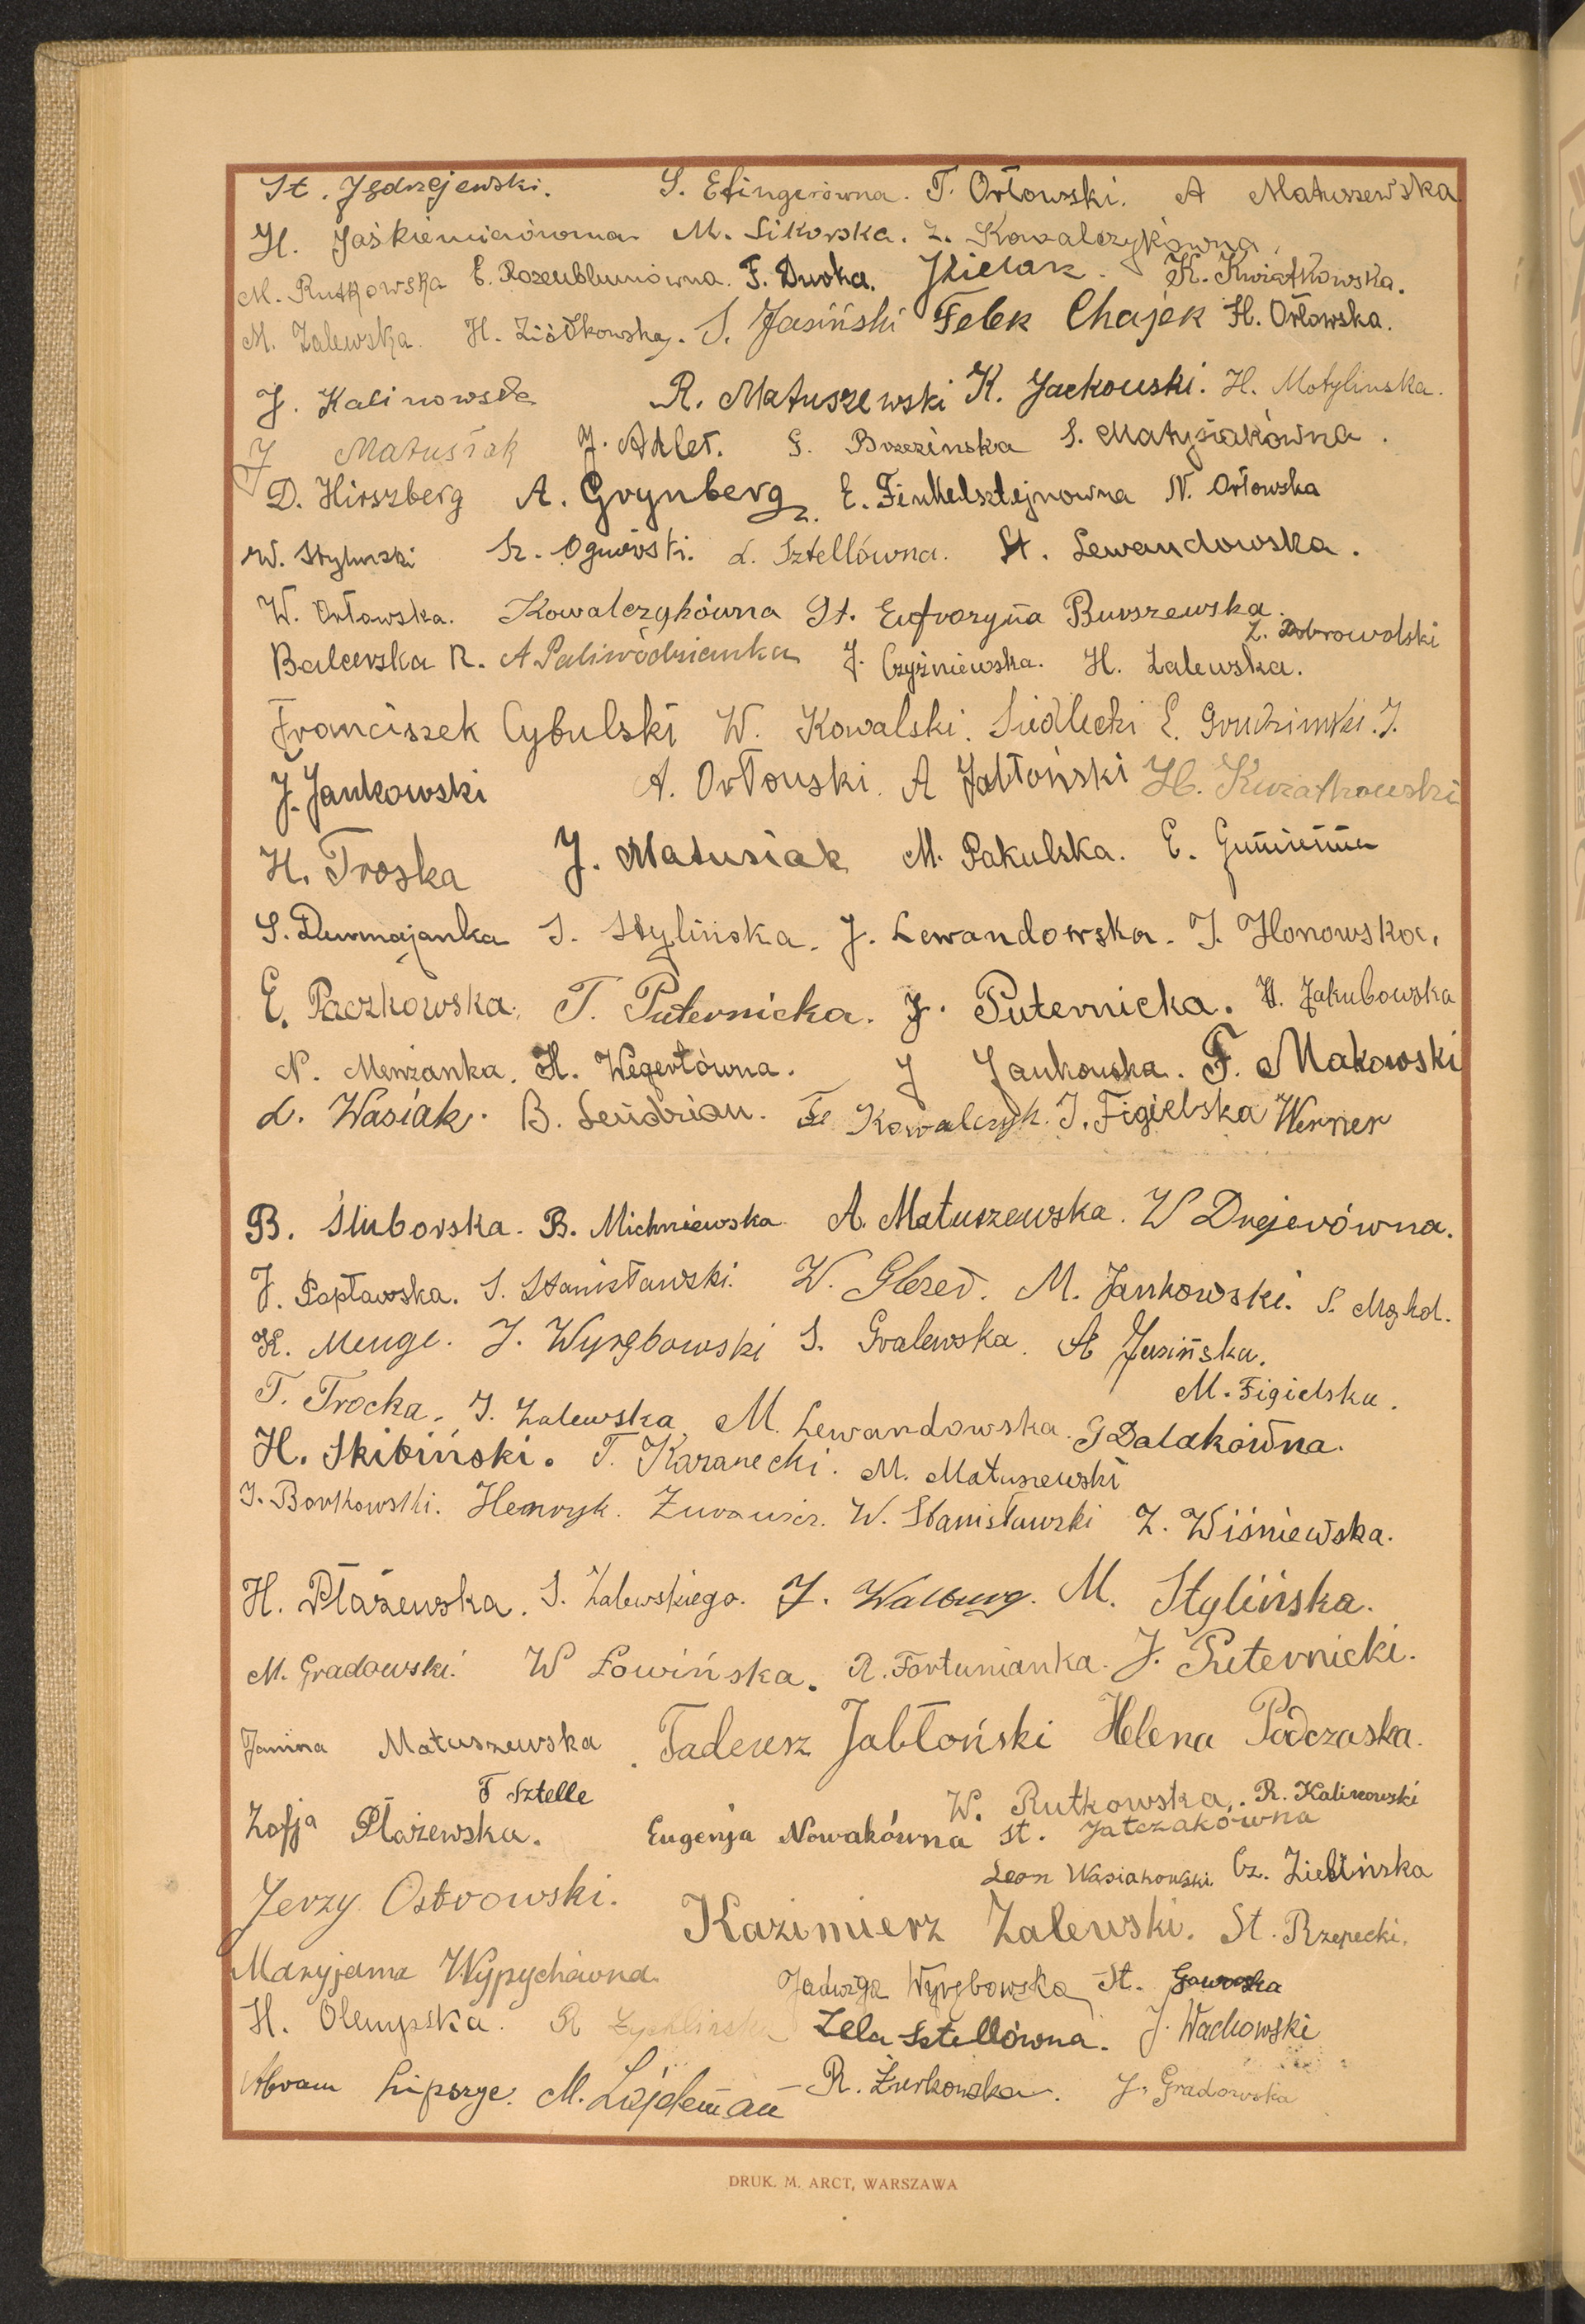 St. Jędrzejewski. S. Efingerówna. T. Orłowski. A Matuszewska
H. Jaśkiewiczówna M. Sikorska. Z. Kowalczykówna.
M. Rutkowska E. Rozenblumówna. F. Durka. J Kielak. K. Kwiatkowska.
M. Zalewska. H. Ziółkowska. S. Jasiński Felek Chajek H. Orłowska.
J. Kalinowska R. Matuszewski K. Jackowski. H. Motylinska.
J Matusiak J. Adler. G. Brzezinska S. Matysiakówna.
D. Hirszberg A. Grynberg E. Finkelsztejnowna N. Orłowska
W. Stylinski L. Sztellówna. St. Lewandowska.
W. Orłowska. Kowalczykówna St. Eufrozyna Burszewska.
Z. Dobrowolski
Balcerska R. A Paliwodzianka J. Czyżniewska. H. Zalewska.
Franciszek Cybulski W. Kowalski. Siedlecki E. Grudzinski. J.
J. Jankowski A. Orłowski. A Jabłoński H. Kwiatkowski
H. Troska J. Matusiak M. Pakulska. E.
S. Durmajanka S. Stylińska. J. Lewandowska. J. Ilonowska.
E. Paczkowska. T. Puternicka. J. Puternicka. H. Jakubowska
N. Menżanka. H. Wegertówna. J Jankowska. F. Makowski
L. Wasiak. B. Lendzian. Fe Kowalczyk. J. Figielska Werner
B. Śluborska. B. Michniewska A. Matuszewska. W Drejerówna.
J. Popławska. S. Stanisławski. W. M. Jankowski. S.
K. Menge. J. Wyrębowski S. Gralewska. A Jasińska.
M. Figielska.
T. Trocka. J. Zalewska M. Lewandowska. G Dalakówna.
H. Skibiński. T. Karanecki. M. Matuszewski
J. Borkowski. Henryk. W. Stanisławski Z. Wiśniewska.
H. Płażewska. S. Zalewskiego. J. Walburg. M. Stylińska.
M. Gradowski. W Łowińska. R. Fortunianka. J. Puternicki.
Janina Matuszewska. Tadeusz Jabłoński Helena Podczaska.
F Sztelle W. Rutkowska. R. Kalinowski
Zofja Płażewska. Eugenja Nowakówna St. Jatczakówna
Leon Wasiakowski Cz. Zielińska
Jerzy Ostrowski. Kazimierz Zalewski. St. Rzepecki.
Maryjanna Wypychówna. Jadwiga Wyrębowska St. Gaworska
H. Olempska. R Żychlinska Lela Sztellówna. J. Wachowski
Abram Lipszyc. M. Lajdeman R. Żurkowska. J. Gradowska
DRUK. M. ARCT, WARSZAWA